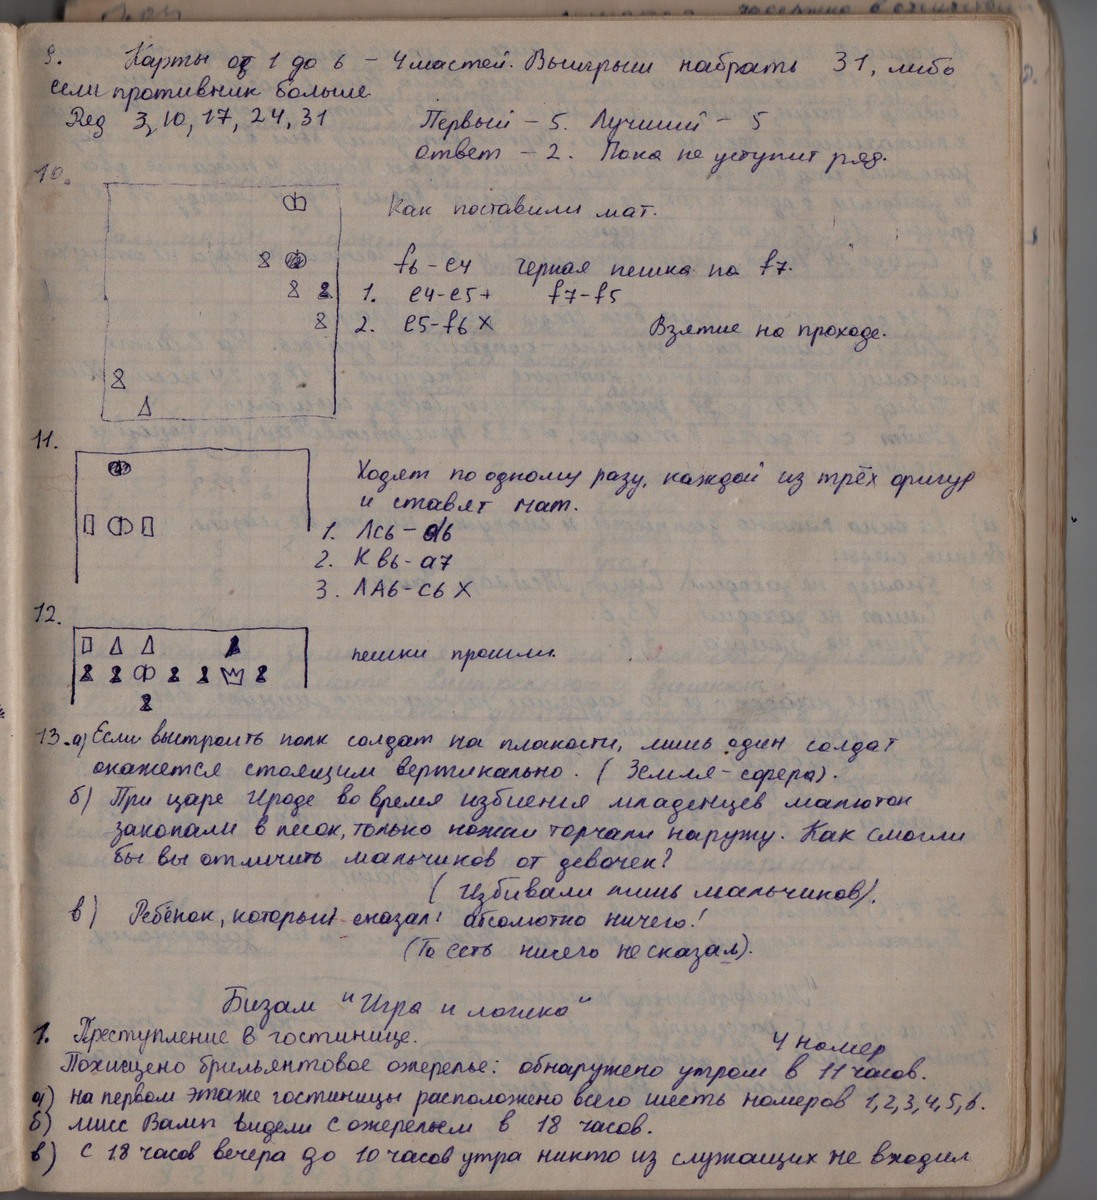 9. Карты от 1 до 6 – 4 мастей. Выигрыш набрать 31, либо
если противник больше.
Ряд 3, 10, 17, 24, 31
Первый – 5. Лучший – 5
ответ – 2. Пока не уступит ряд.
10.
Как поставили мат.
f6-e4 черная пешка на f7.
1. e4-e5+ f7-f5
2. e5-f6 X Взятие на проходе.
11.
Ходят по одному разу, каждой из трёх фигур
и ставят мат.
1. Лc6 – d6
2. К в6 – а7
3. ЛА6 – с6 X
12.
пешки прошли.
13. а) Если выстроить полк солдат на плакости, лишь один солдат
окажется стоящим вертикально. (Земля – сфера).
б) При царе Ироде во время избиения младенцев малюток
закопали в песок, только ножки торчали наружу. Как смогли
бы вы отличить мальчиков от девочек?
(Избивали лишь мальчиков).
в) Ребёнок, который сказал: абсолютно ничего!
(То есть ничего не сказал).
Бизам "Игра и логика"
1. Преступление в гостинице. 4 номер
Похищено брильянтовое ожерелье: обнаружено утром в 11 часов.
а) на первом этаже гостиницы расположено всего шесть номеров 1,2,3,4,5,6.
б) мисс Вамп видели с ожерельем в 18 часов.
в) с 18 часов вечера до 10 часов утра никто из служащих не входил